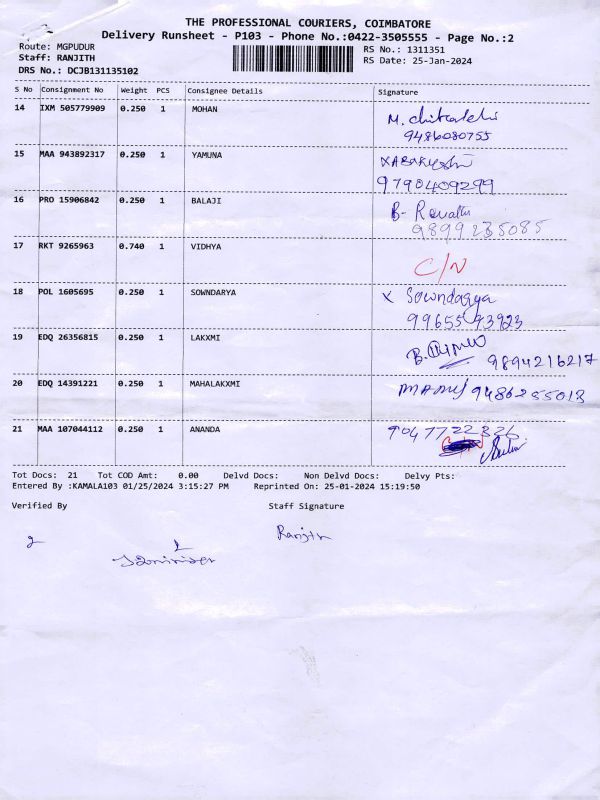 THE PROFESSIONAL COURIERS, COIMBATORE
Delivery Runsheet - P103 - Phone No.:0422-3505555 - Page No.:2
Route: MGPUDUR
RS No.: 1311351
Staff: RANJITH
RS Date: 25-Jan-2024
DRS No.: DCJB131135102
S No Consignment No Weight PCS Consignee Details Signature
14 IXM 505779909 0.250 1 MOHAN
9486080755
15 MAA 943892317 0.250 1 YAMUNA
9790409299
16 PRO 15906842 0.250 1 BALAJI
9899235085
17 RKT 9265963 0.740 1 VIDHYA C/N
18 POL 1605695 0.250 1 SOWNDARYA X Sowndarya
99655 93923
19 EDQ 26356815 0.250 1 LAKXMI
9894216217
20 EDQ 14391221 0.250 1 MAHALAKXMI 9486255013
21 MAA 107044112 0.250 1 ANANDA
Tot Docs: 21 Tot COD Amt: 0.00 Delvd Docs: Non Delvd Docs: Delvy Pts:
Entered By :KAMALA103 01/25/2024 3:15:27 PM Reprinted On: 25-01-2024 15:19:50
Verified By Staff Signature
Ranjith